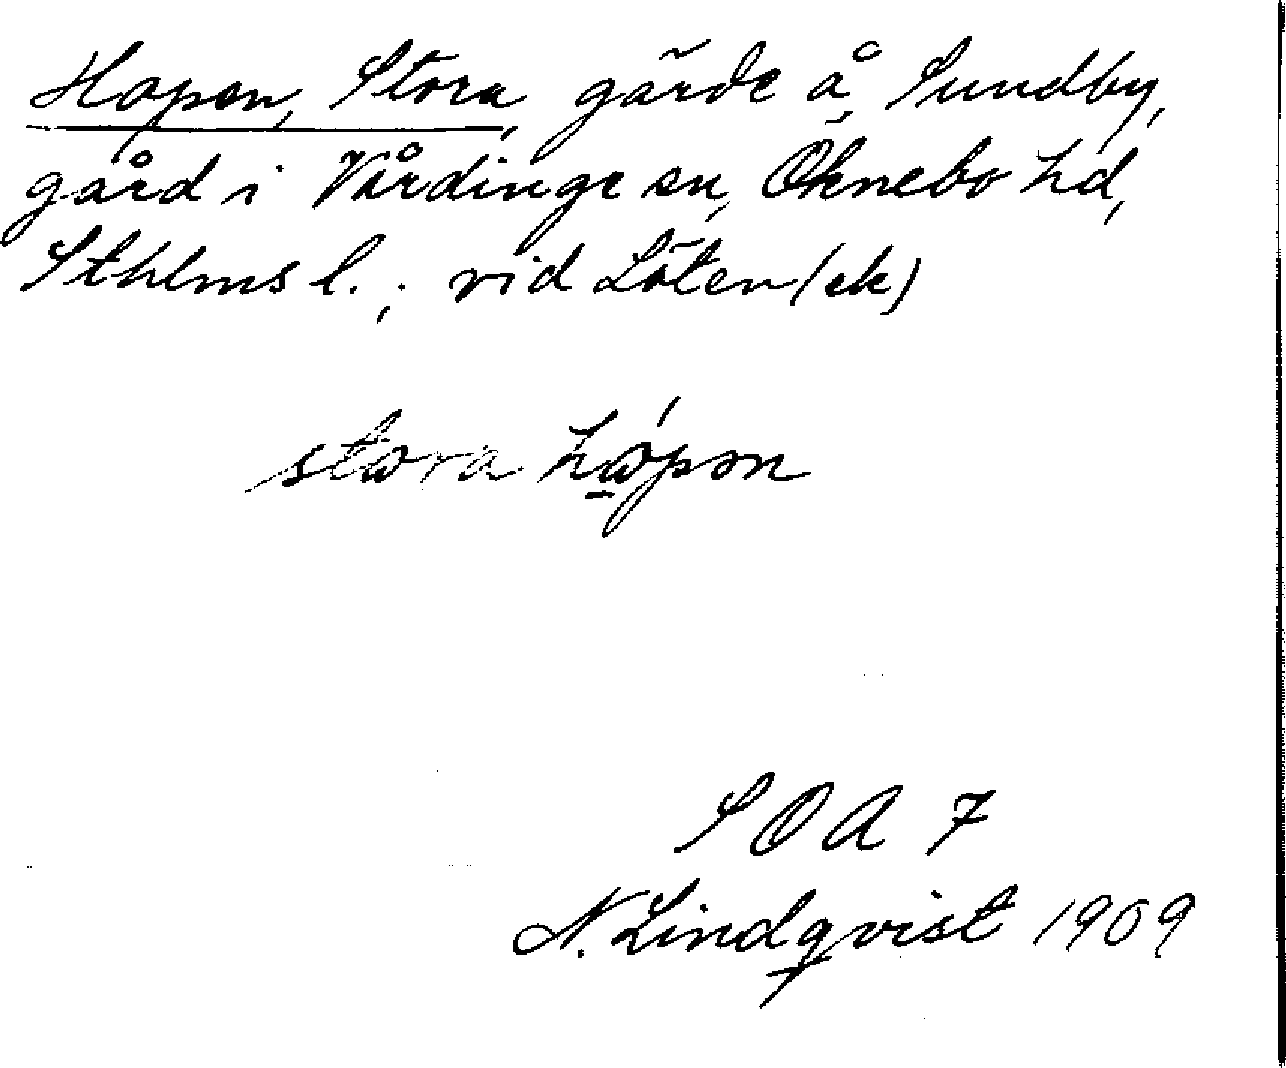 Hopen, Stora, gärde å Sundby,
gård i Vårdinge sn, Öknebo hd,
Sthlms l.; vid Löten (ek)
stora hópən
SOA 7
N. Lindqvist 1909